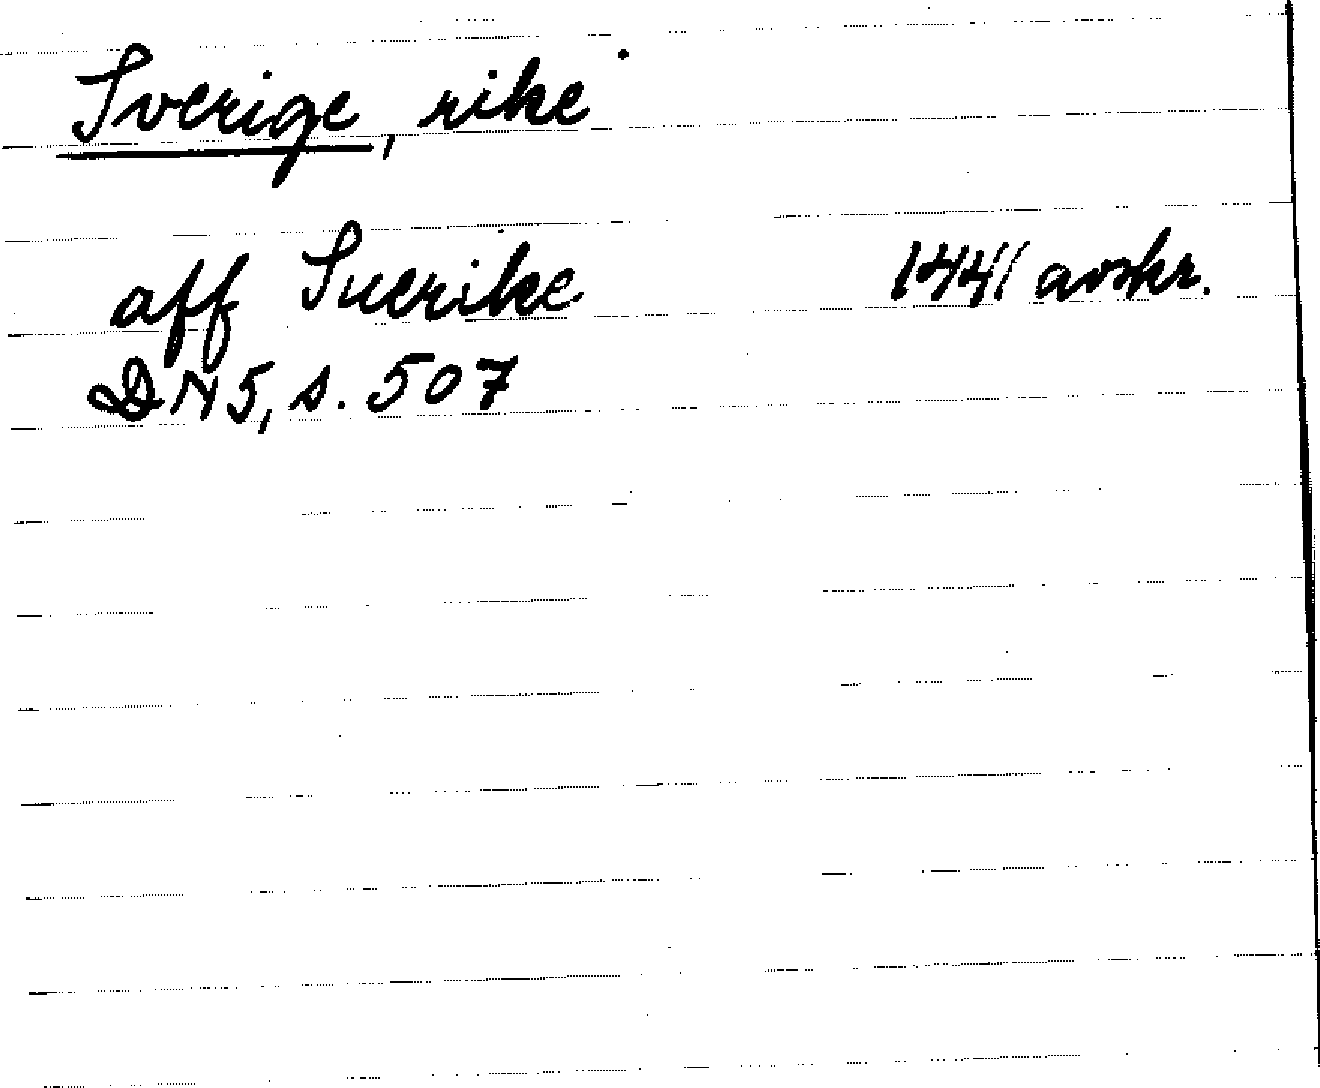 Sverige, rike
aff Suerike 1441 avskr.
DN 5, s. 507